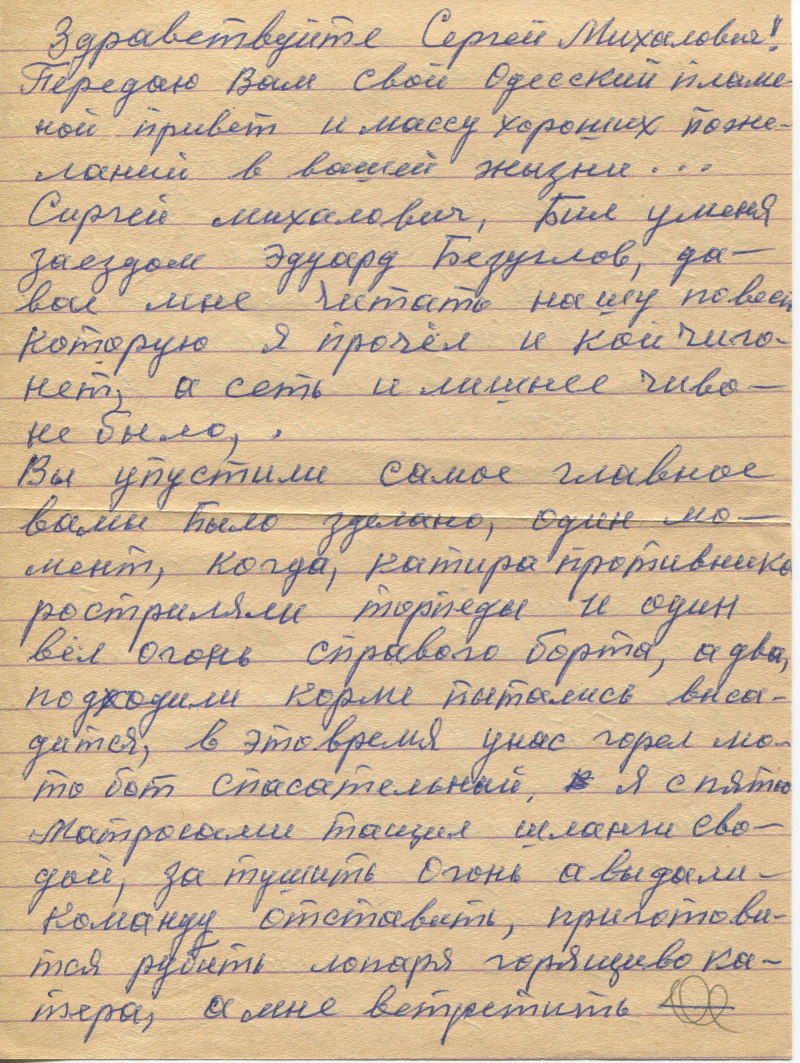 Здравствуйте Сергей Михалович!
Передаю Вам свой Одесский пламе-
ной привет и массу хороших поже-
ланий в вашей жизни...
Сиргей михалович, Бил уменя
заездом Эдуард Безуглов, да-
вал мне читать нашу повесть
которую я прочёл и кой чиго-
нет, а сеть и лишнее чиво-
не было, .
Вы упустили самое главное
вами было зделано, один мо-
мент, когда, катира противника
ростриляли торпеды и один
вёл огонь справого борта, а два,
подходили корме пытались виса-
дится, в этовремя унас горел мо-
то бот спасательный, я спятю
матросами тащил шланги сво-
дой, за тушить Огонь авыдали-
команду отставить, приготови-
тся рубить лопаря горящиво ка-
тера, амне ветретить